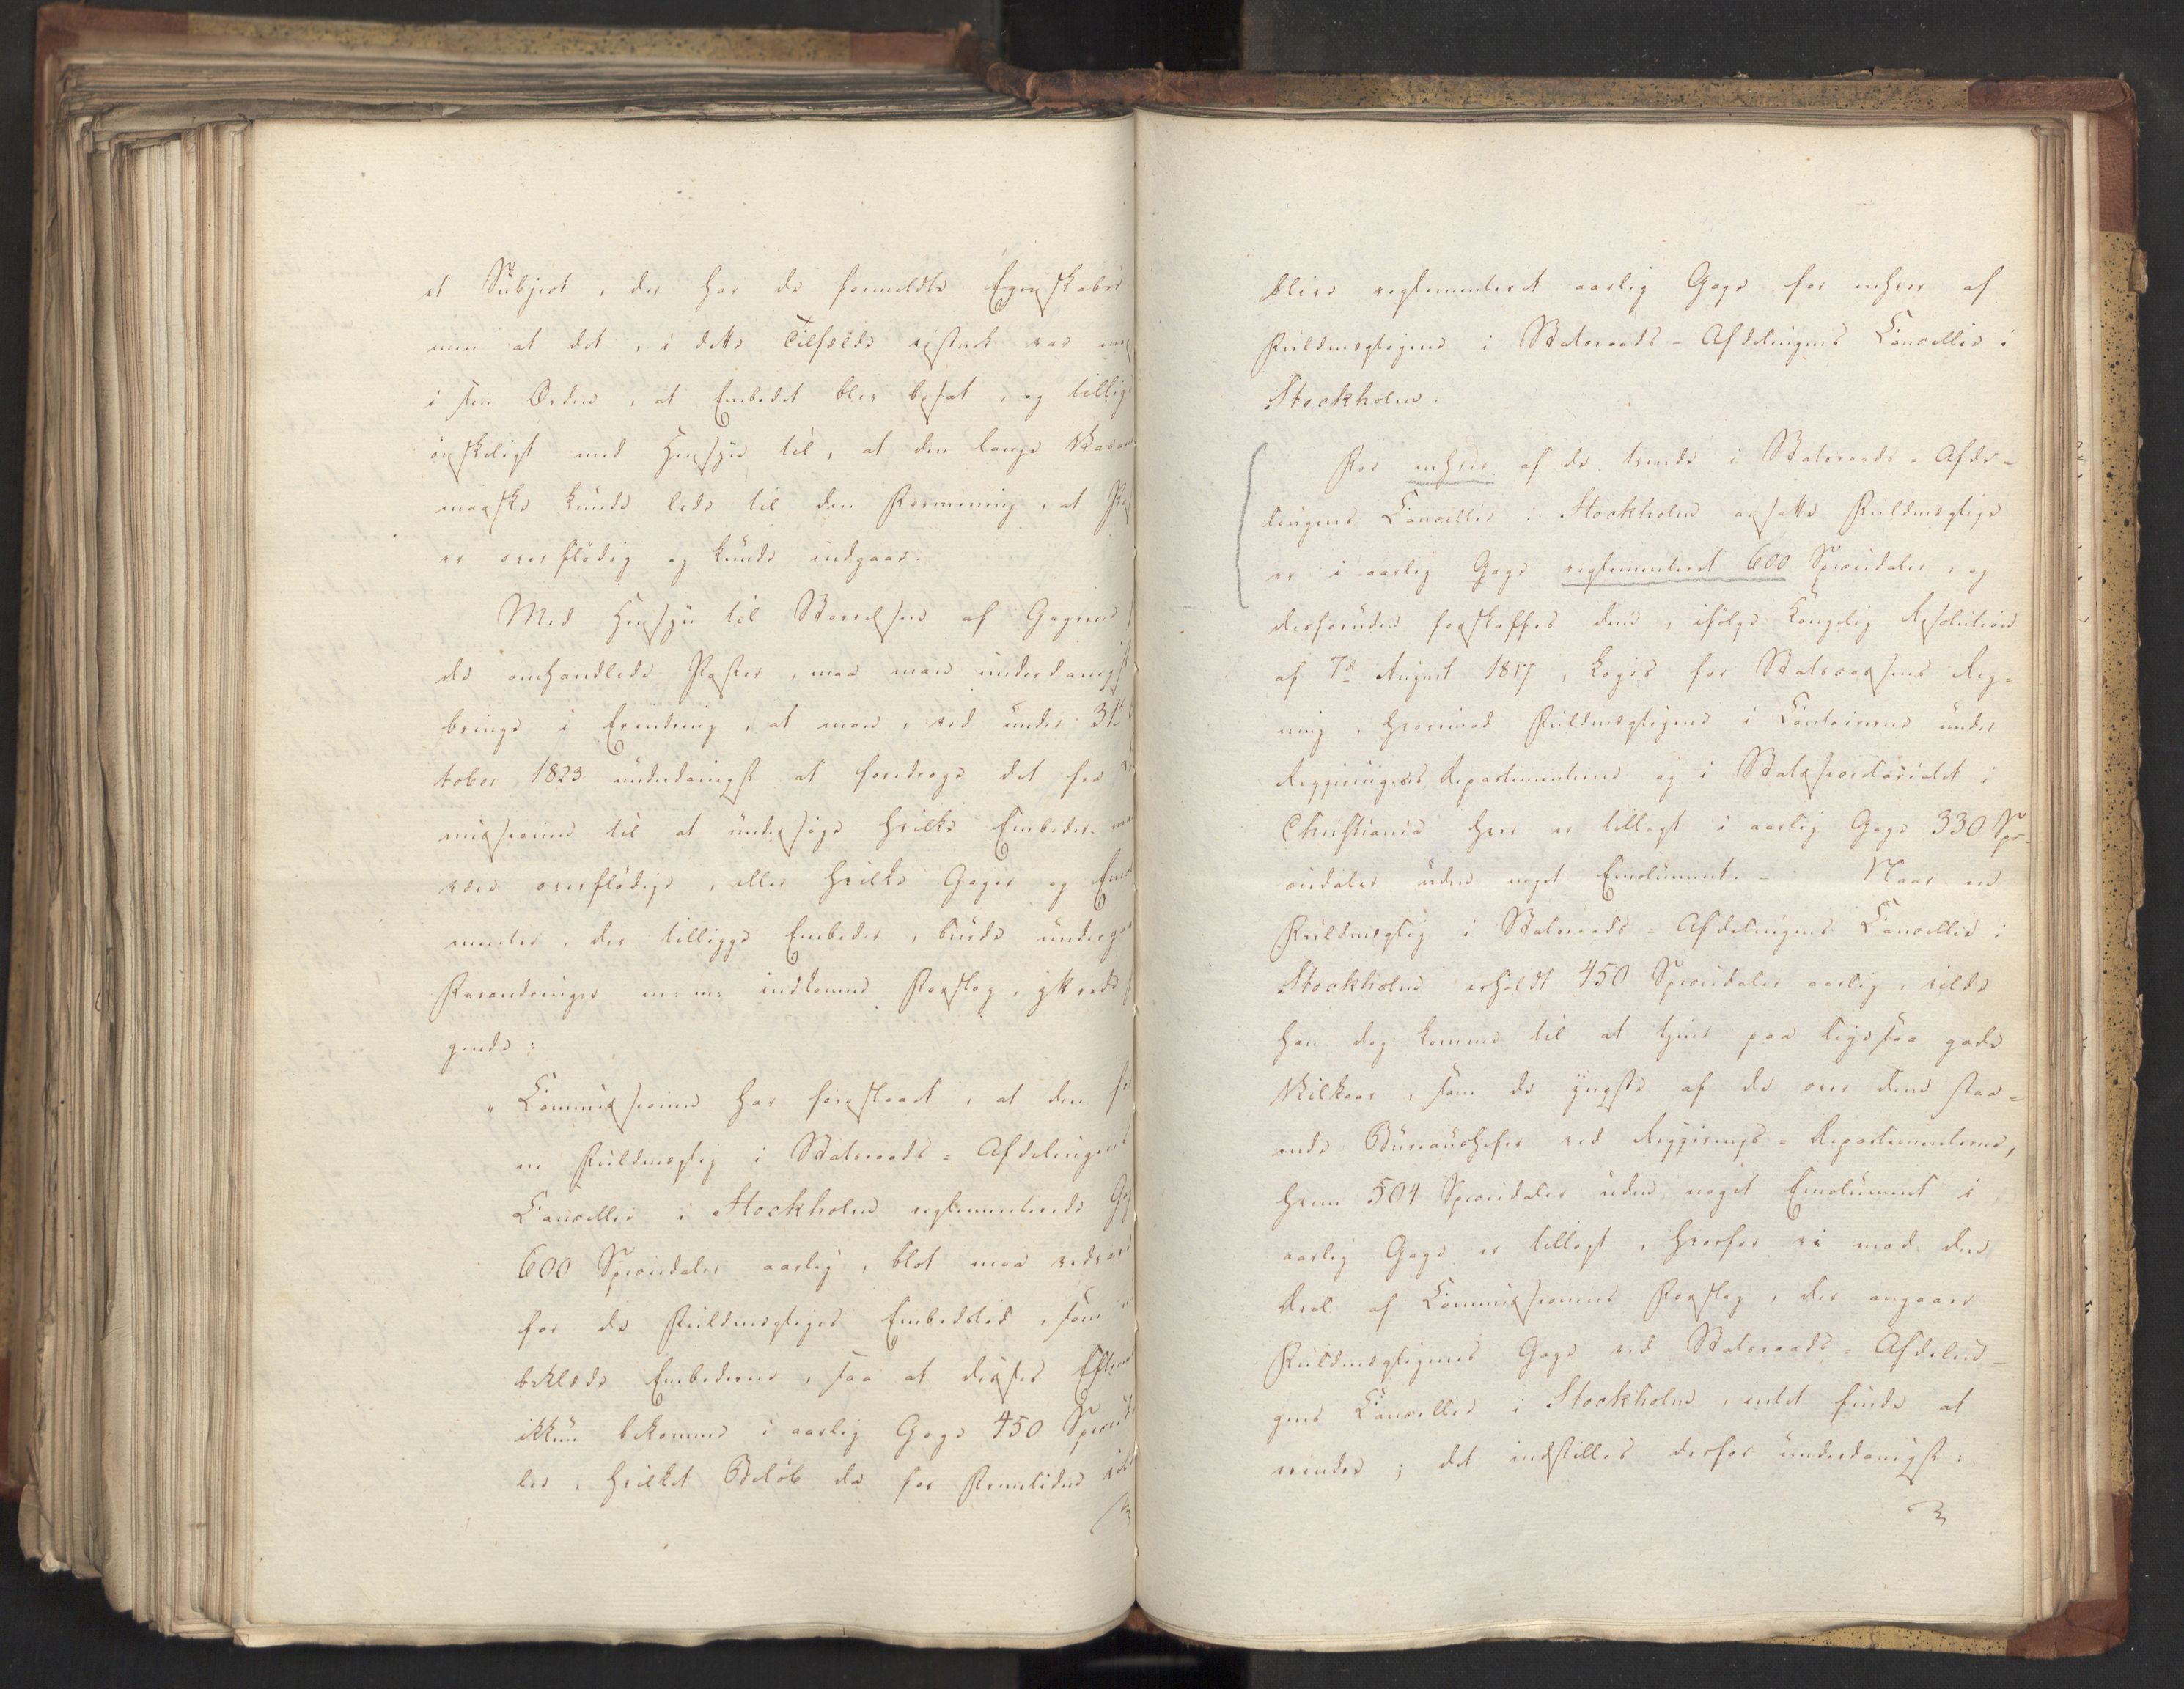 et Subject, der har de formeldte Egenskaber
men at det, i dette Tilfælde vistnok var
i sin Orden, at Embedet blev besat, og tillige
ønskeligt med Hensyn til, at den lange
maaske kunde lede til den Formening, at
er overflødig og kunde indgaae.
Med Hensyn til Størrelsen af Gagerne
de omhandlede Poster, maa man underdanigst
bringe i Erindring, at man, ved under 31te
tober 1823 underdanigst at foredrage det fra
missionen til at undersøge hvilke Embeder
være overflødige, eller hvilke Gager og
menter, der tilligge Embeder, burde undergaae
Forandringer m: m: indkomne Forslag, yttrede
gende:
"Commissionen har foreslaaet, at den for
en Fuldmægtig i Statsraads-Afdelingens
Cancellie i Stockholm reglementerede Gage
600 Speciedaler aarlig, blot maa vedvare
for de Fuldmægtiges Embedstid, som
beklæde Embederne, saa at disses
ikkun bekomme i aarlig Gage 450
ler, hvilket Beløb da for Fremtiden vilde
blive reglementeret aarlig Gage for enhver af
Fuldmægtigene i Statsraads-Afdelingens Cancellie i
Stockholm.
For enhver af de trende i Statsraads-Afde-
lingens Cancellie i Stockholm ansatte Fuldmægtige
er i aarlig Gage reglementeret 600 Speciedaler, og
desforuden forskaffes dem, ifølge Kongelig Resolution
af 7de August 1817, Logis for Statscassens Reg-
ning, hvorimod Fuldmægtigene i Contoirene under
Regjeringens Departementer og i Statssecretariatet i
Christiania hver er tillagt i aarlig Gage 330 Spe-
ciedaler uden noget Emolument. - Naar en
Fuldmægtig i Statsraads-Afdelingens Cancellie i
Stockholm erholdt 450 Speciedaler aarlig, vilde
han dog komme til at tjene paa ligesaa gode
Vilkaar, som de yngste af de over dem staa-
ende Bureauchefer ved Regjerings-Departementerne,
hvem 504 Speciedaler uden noget Emolument i
aarlig Gage er tillagt, hvorfor vi mod den
Deel af Commissionens Forslag, der angaaer
Fuldmægtigenes Gage ved Statsraads-Afdelin-
gens Cancellie i Stockholm, intet finde at
erindre; det indstilles derfor underdanigst: